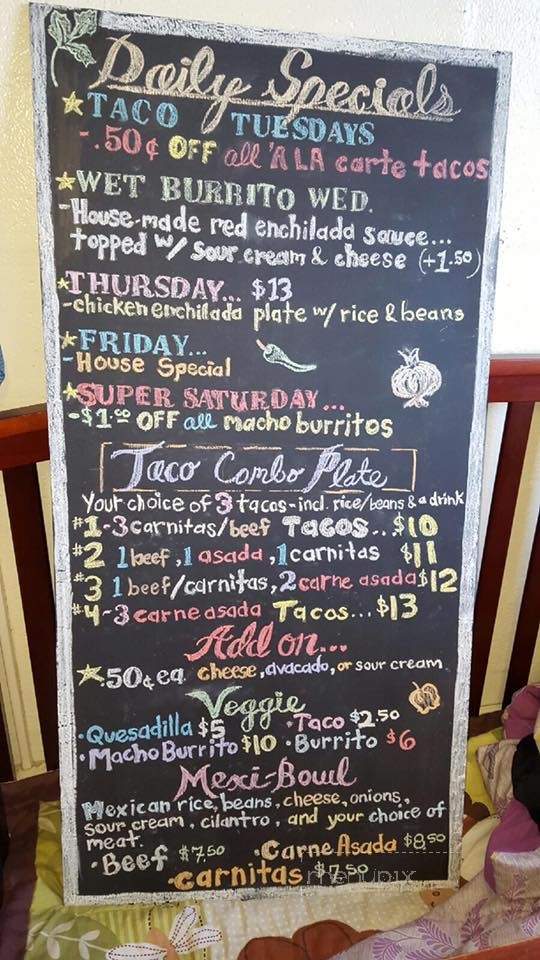 Daily Specials
TACO TUESDAYS
-.50¢ OFF all 'A LA carte tacos
WET BURRITO WED.
-House-made red enchilada sauce...
topped w/ sour cream & cheese (+1.50)
THURSDAY... $13
-chicken enchilada plate w/ rice & beans
FRIDAY...
-House Special
SUPER SATURDAY...
-$1.00 OFF all macho burritos
Taco Combo Plate
Your choice of 3 tacos-incl. rice/beans & a drink
#1-3 carnitas/beef Tacos... $10
#2 1 beef, 1 asada, 1 carnitas $11
#3 1 beef/carnitas, 2 carne asada $12
#4-3 carne asada Tacos... $13
Add on...
.50¢ ea. cheese, avacado, or sour cream
Veggie
·Quesadilla $5 ·Taco $2.50
·Macho Burrito $10 ·Burrito $6
Mexi-Bowl
Mexican rice, beans, cheese, onions,
sour cream, cilantro, and your choice of
meat.
·Beef $7.50 ·Carne Asada $8.50
·carnitas $7.50
menupix